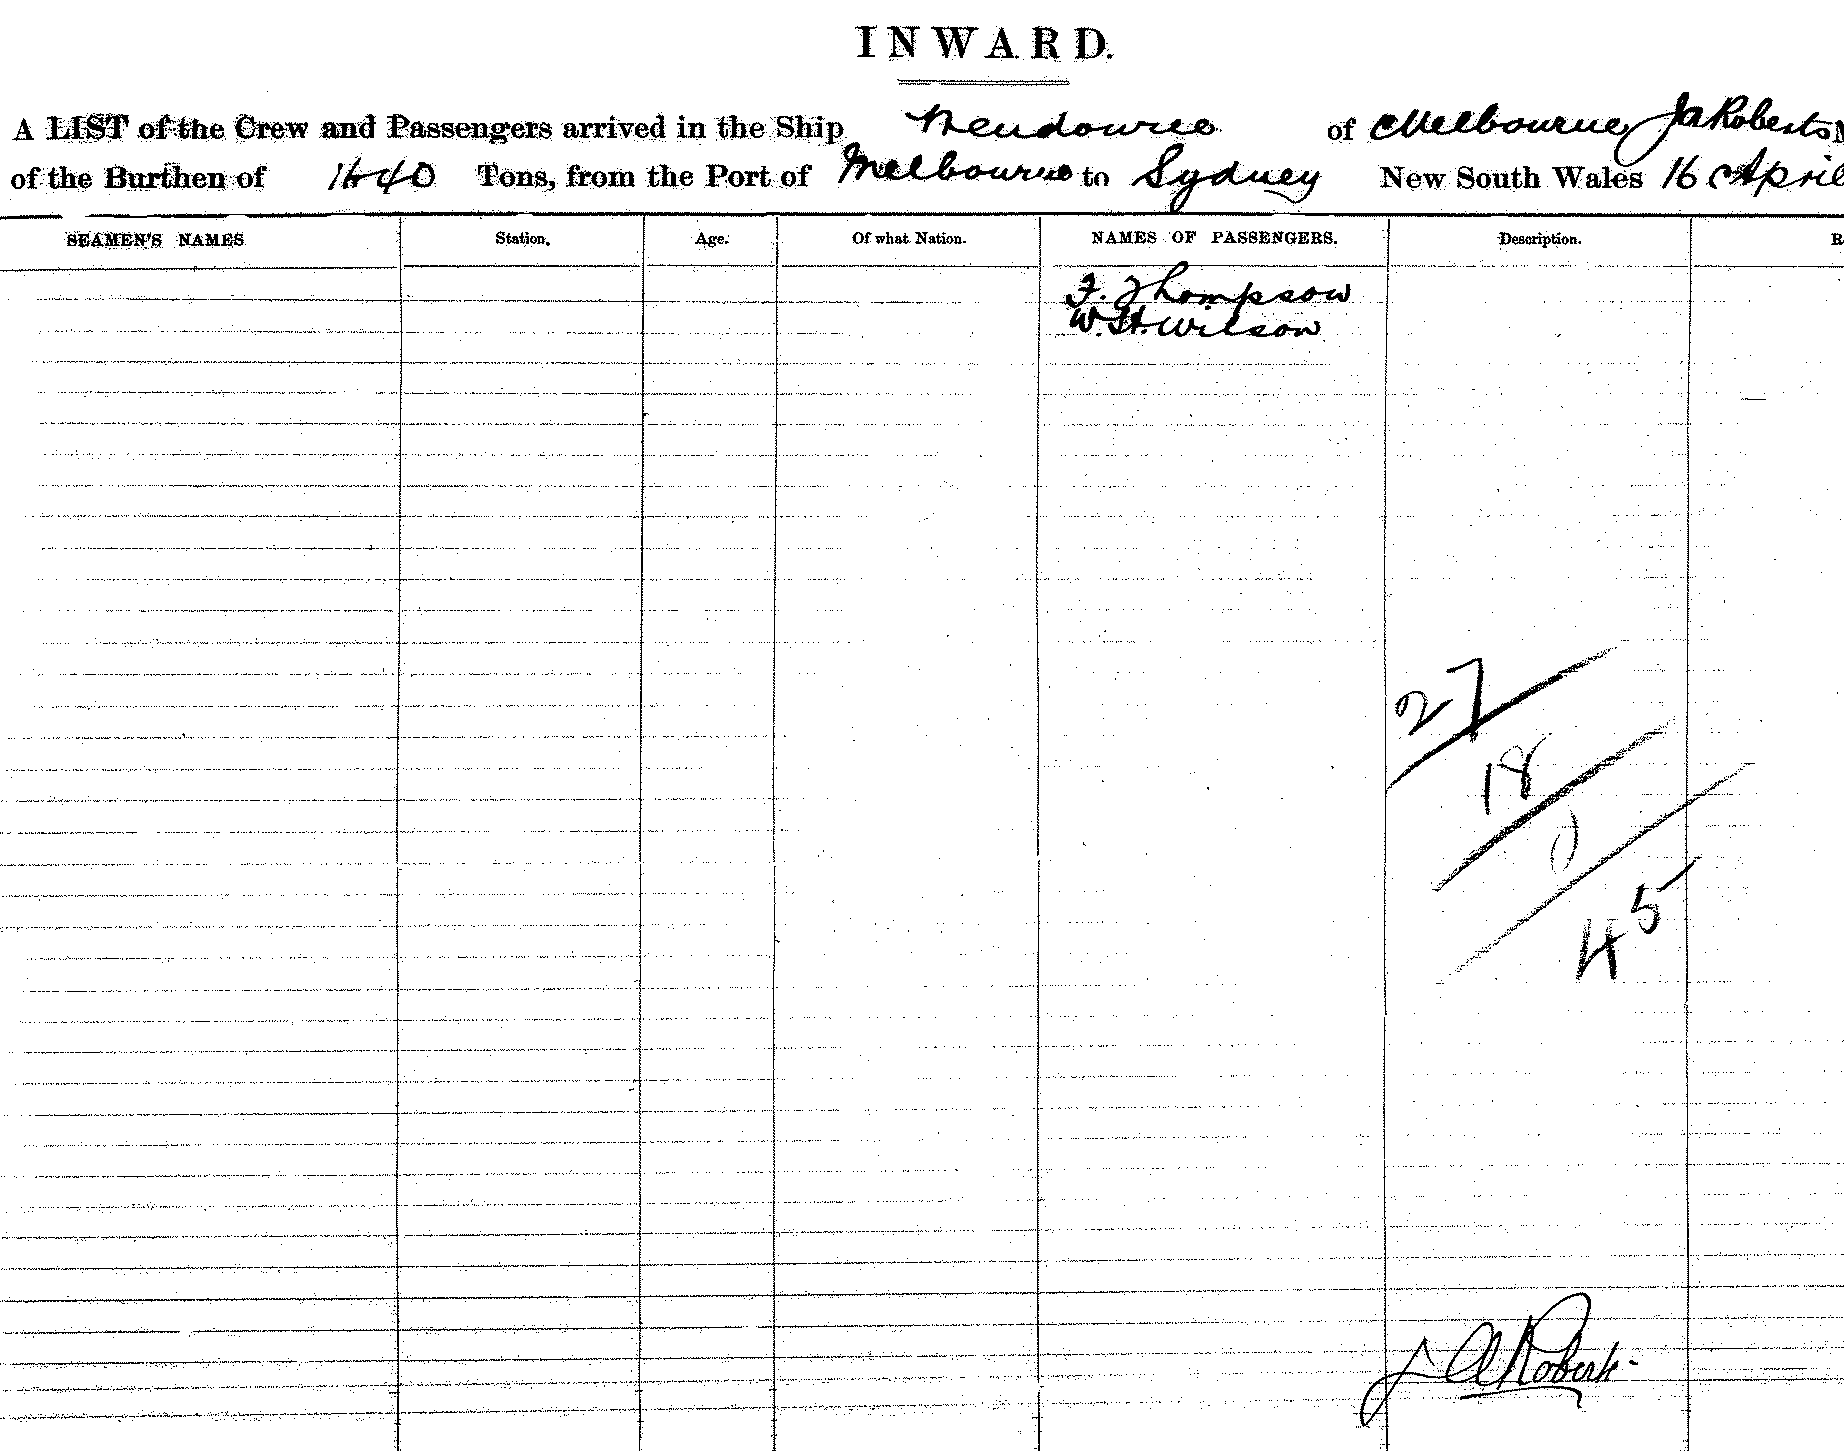 INWARD.
A LIST of the Crew and Passengers arrived in the Ship Wendouree of Melbourne, JA Roberts
of the Burthen of 1640 Tons, from the Port of Melbourne to Sydney New South Wales 16 April
SEAMEN'S NAMES Station. Age. Of what Nation. NAMES OF PASSENGERS. Description.
F. Thompson
W. H. Wilson
27
18
0
45
J A Roberts